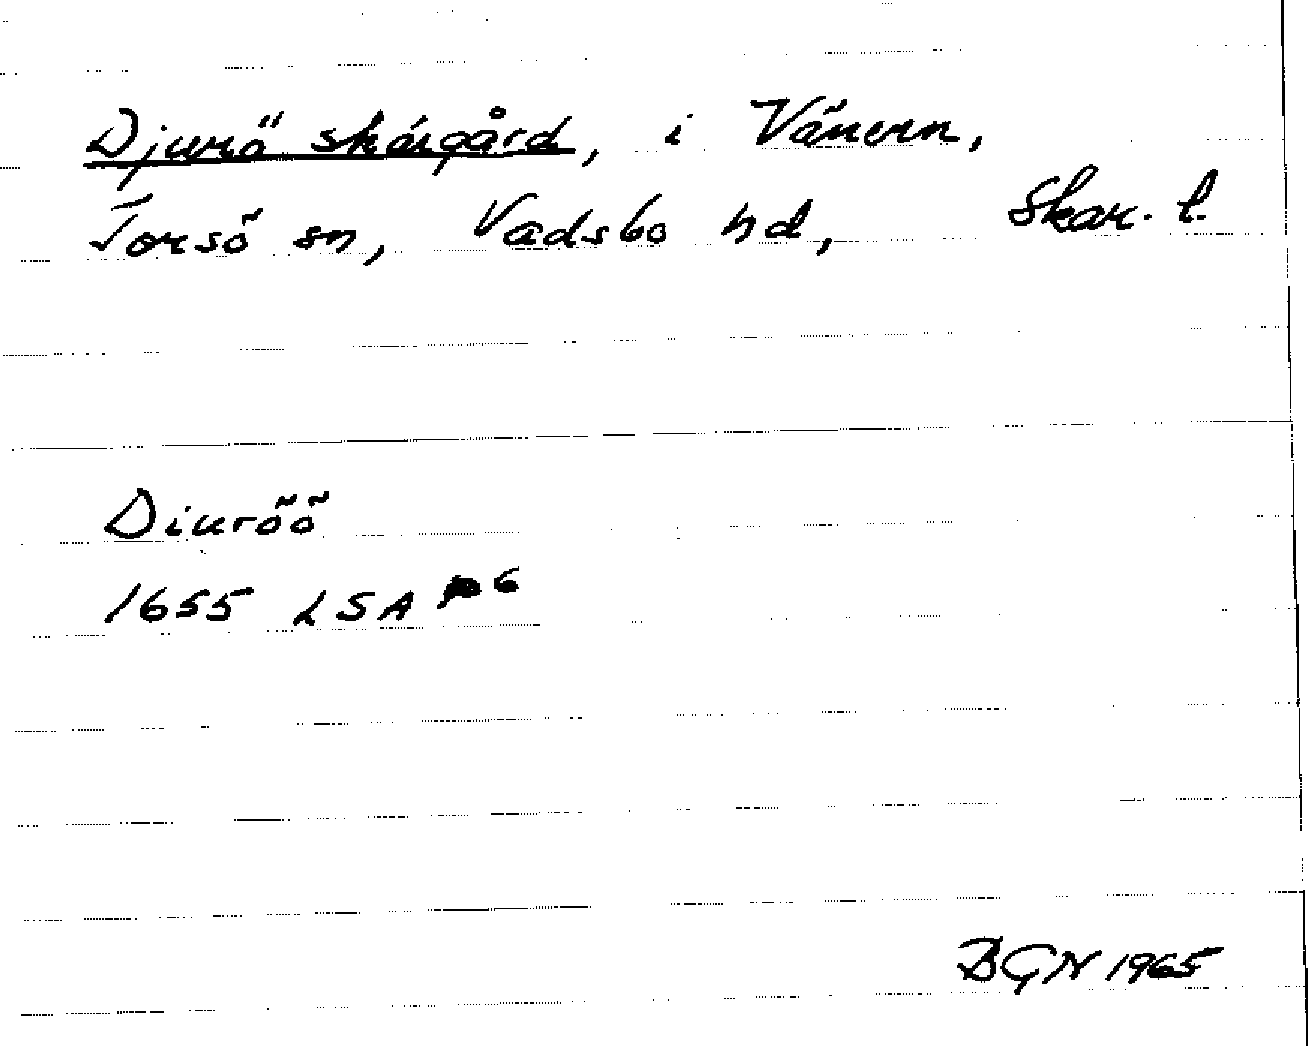 Djurö skärgård, i Vänern,
Torsö sn, Vadsbo hd, Skar. l.
Diuröö
1655 LSA P6
BGN 1965